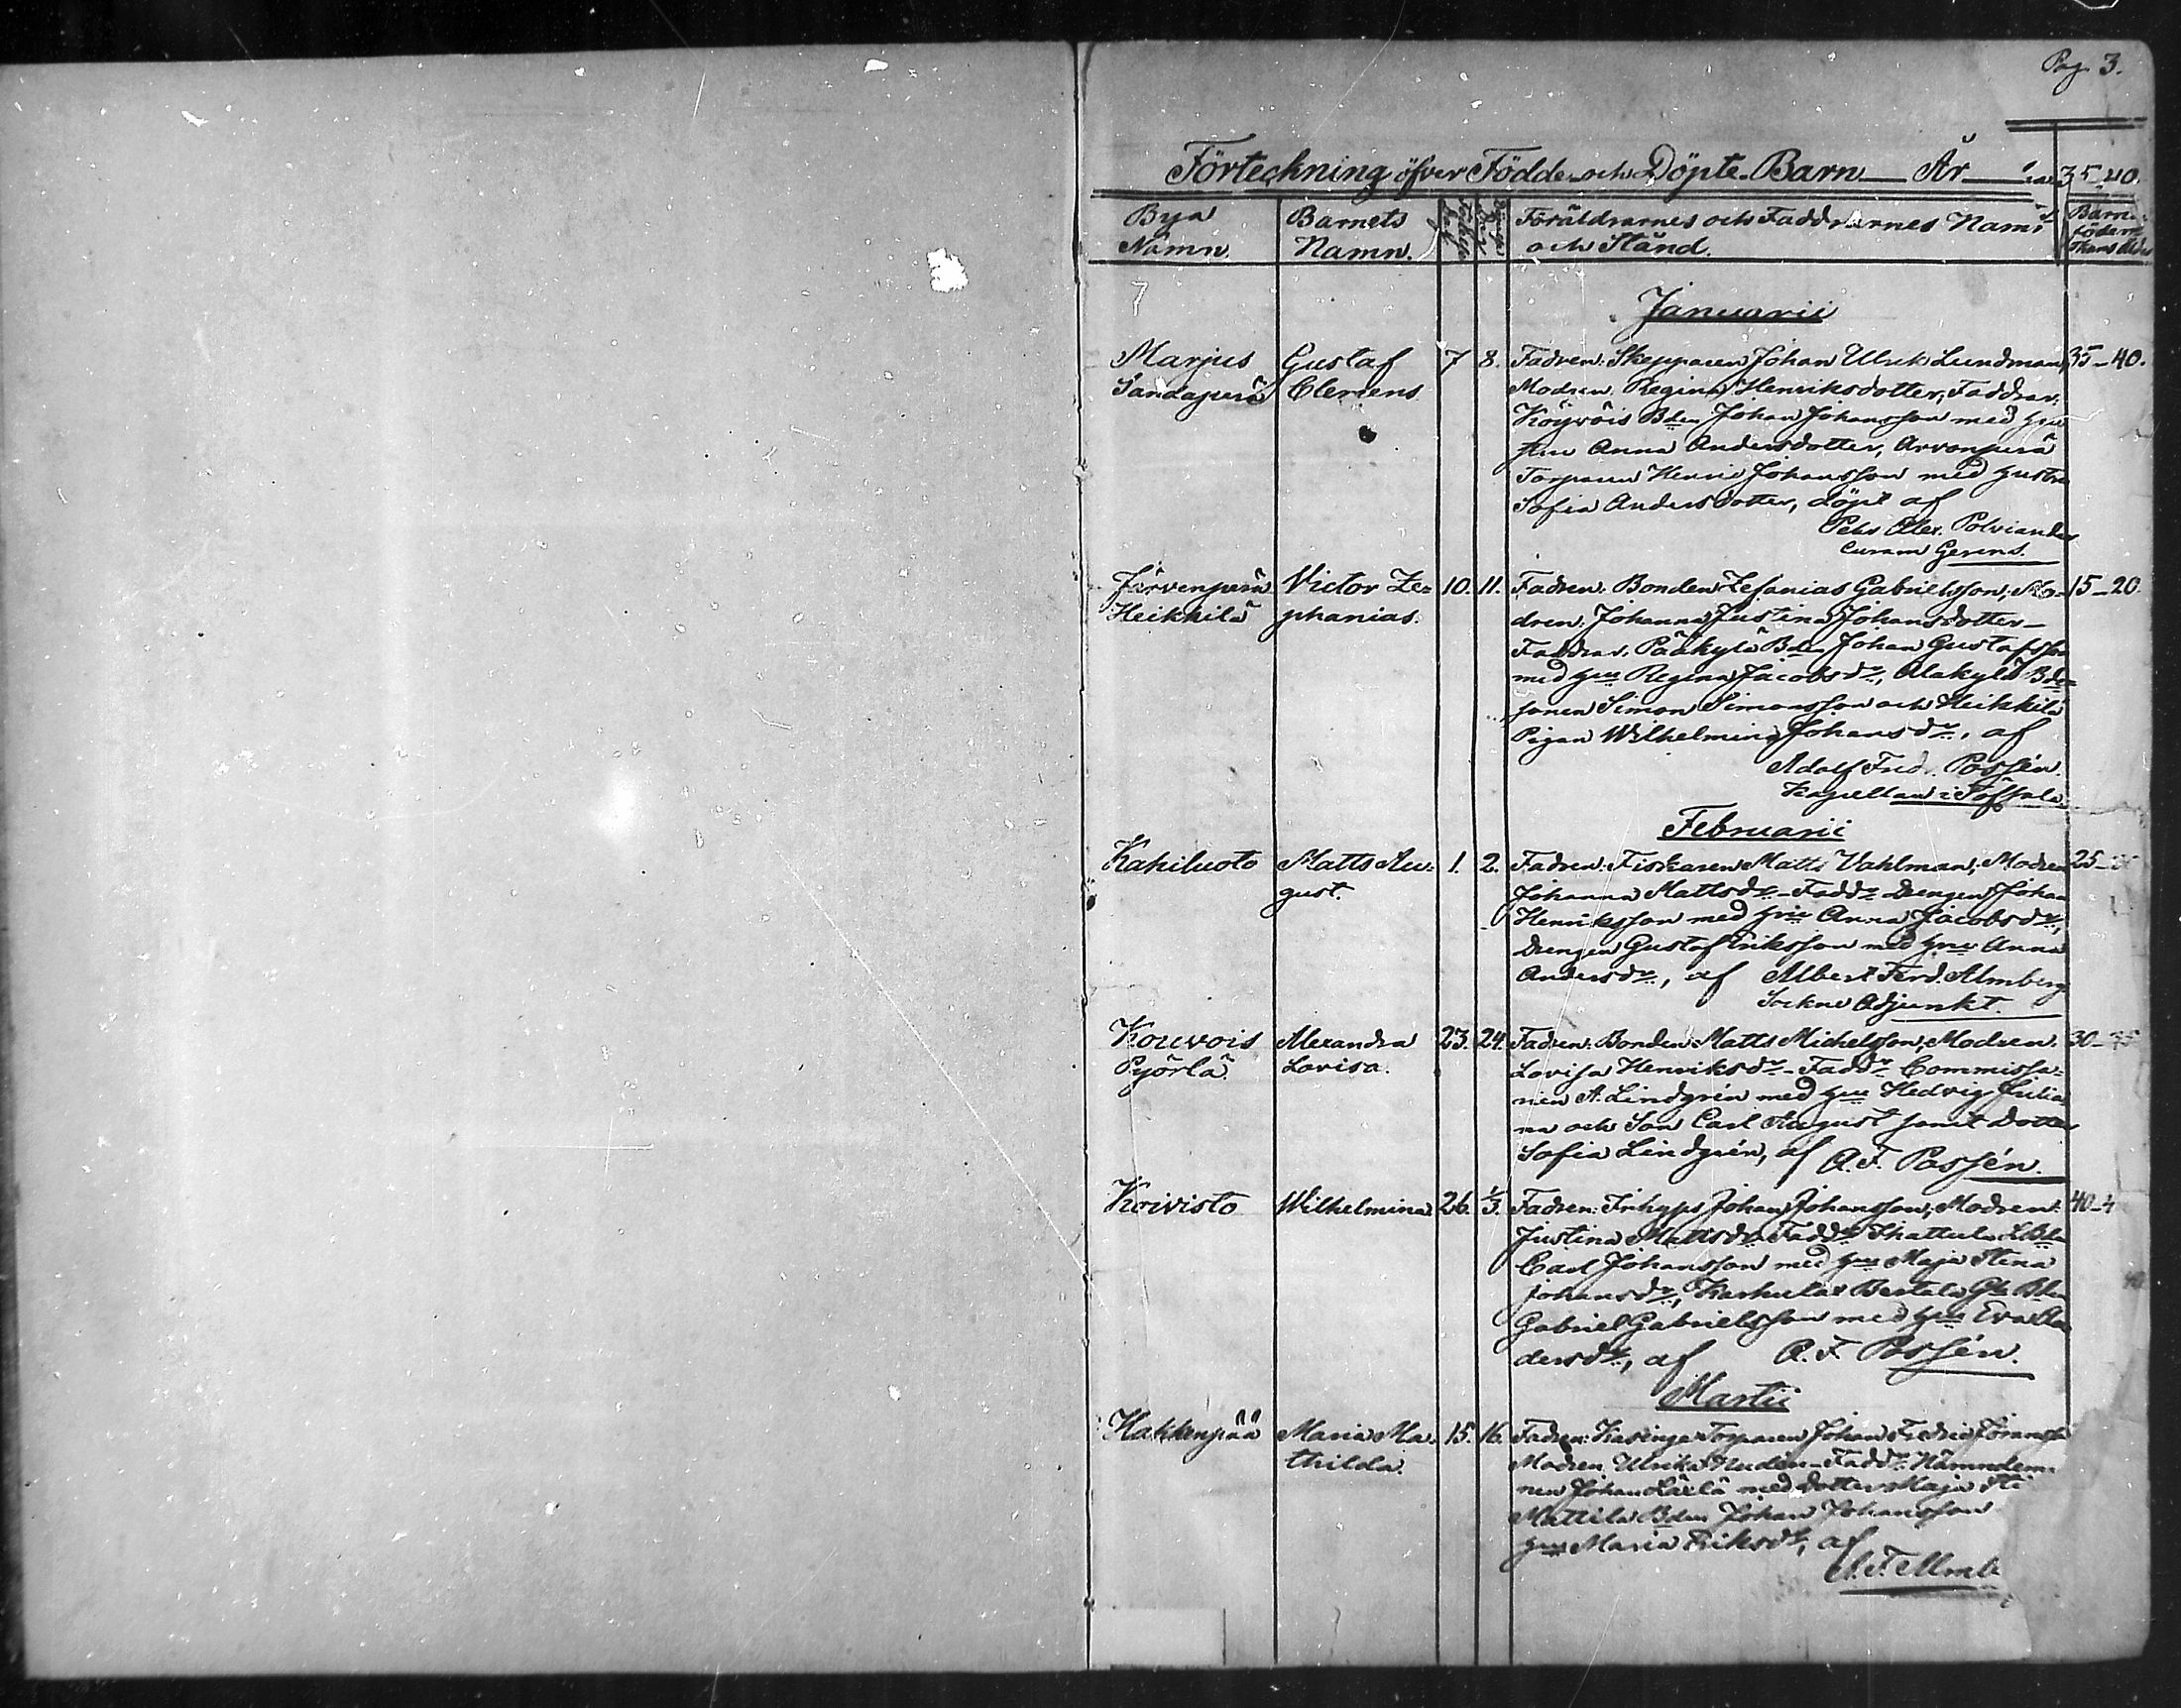 Pag. 3.
Förteckning öfver Födde och Döpte Barn År 35-40.
Bya Namn.
Barnets Namn.
Föräldrarnes och Faddrarnes Namn
och Stånd.
Barna-
föderskans Ålder
Januarii
Marjus Gustaf 7 8. Fadren: Skepparen Johan Ulrik Lundman, 35-40.
Sandaperä Clemens Modren Regina Henriksdotter, Faddrar:
Köyvöis Bden Johan Johansson med hu
stru Anna Andersdotter, Arvonperä
Torparen Henric Johansson med hustru
Sofia Andersdotter, döpt af
Petr Alex. Polviander
curam Gerens.
Järvenperä Victor Ze= 10. 11. Fadren: Bonden Zefanias Gabrielsson, Mo- 15-20.
Heikkilä phanias. dren: Johanna Justina Johansdotter-
Faddrar: Pääkylä Bden Johan Gustafsson
med hu Regina Jacobsdr, Alakylä Bde=
sonen Simon Simonsson och Heikkilä
Pigan Wilhelmina Johansdr, af
Adolf Fredr. Possén.
Kapellan i
Februarii
Kahiluoto Matts Au= 1. 2. Fadren: Fiskaren Matts Vahlman, Modren 25-
gust. Johanna Mattsdr-Faddr Drengen Johan
Henriksson med hu Anna Jacobsdr,
Drengen Gustaf Eriksson med hu Anna
Andersdr, af Albert Ferd. Almberg
Sockne Adjunkt.
Kouvois Alexandra 23. 24. Fadren: Bonden Matts Michelsson, Modren. 30-35
Pyörlä. Lovisa. Lovisa Henriksdr-Faddr Commissa=
rien A. Lindgrén med hu Hedvig Julia
na och Son Carl August samt Dotter
Sofia Lindgrén, af A. F. Possén.
Koivisto Wilhelmina 26. 1/3. Fadren: Inhyps Johan Johansson, Modren: 40-4
Justina Mattsdr Faddr
Carl Johansson med hu Maja Stina
Johansdr, Karhula Bertala Bden
Gabriel Gabrielsson med hu Eva An
dersdr, af A. F. Possén.
Martii
Hakkenpää Maria Ma= 15. 16. Fadren: Torparen Johan Fredric
thilda. Modren Ulrika Faddr Nämndem=
nen Johan Lärlä med Dotter Maja Sti
Mattila Bden Johan Johansson
hu Maria Eriksdr, af
A. F. Almb